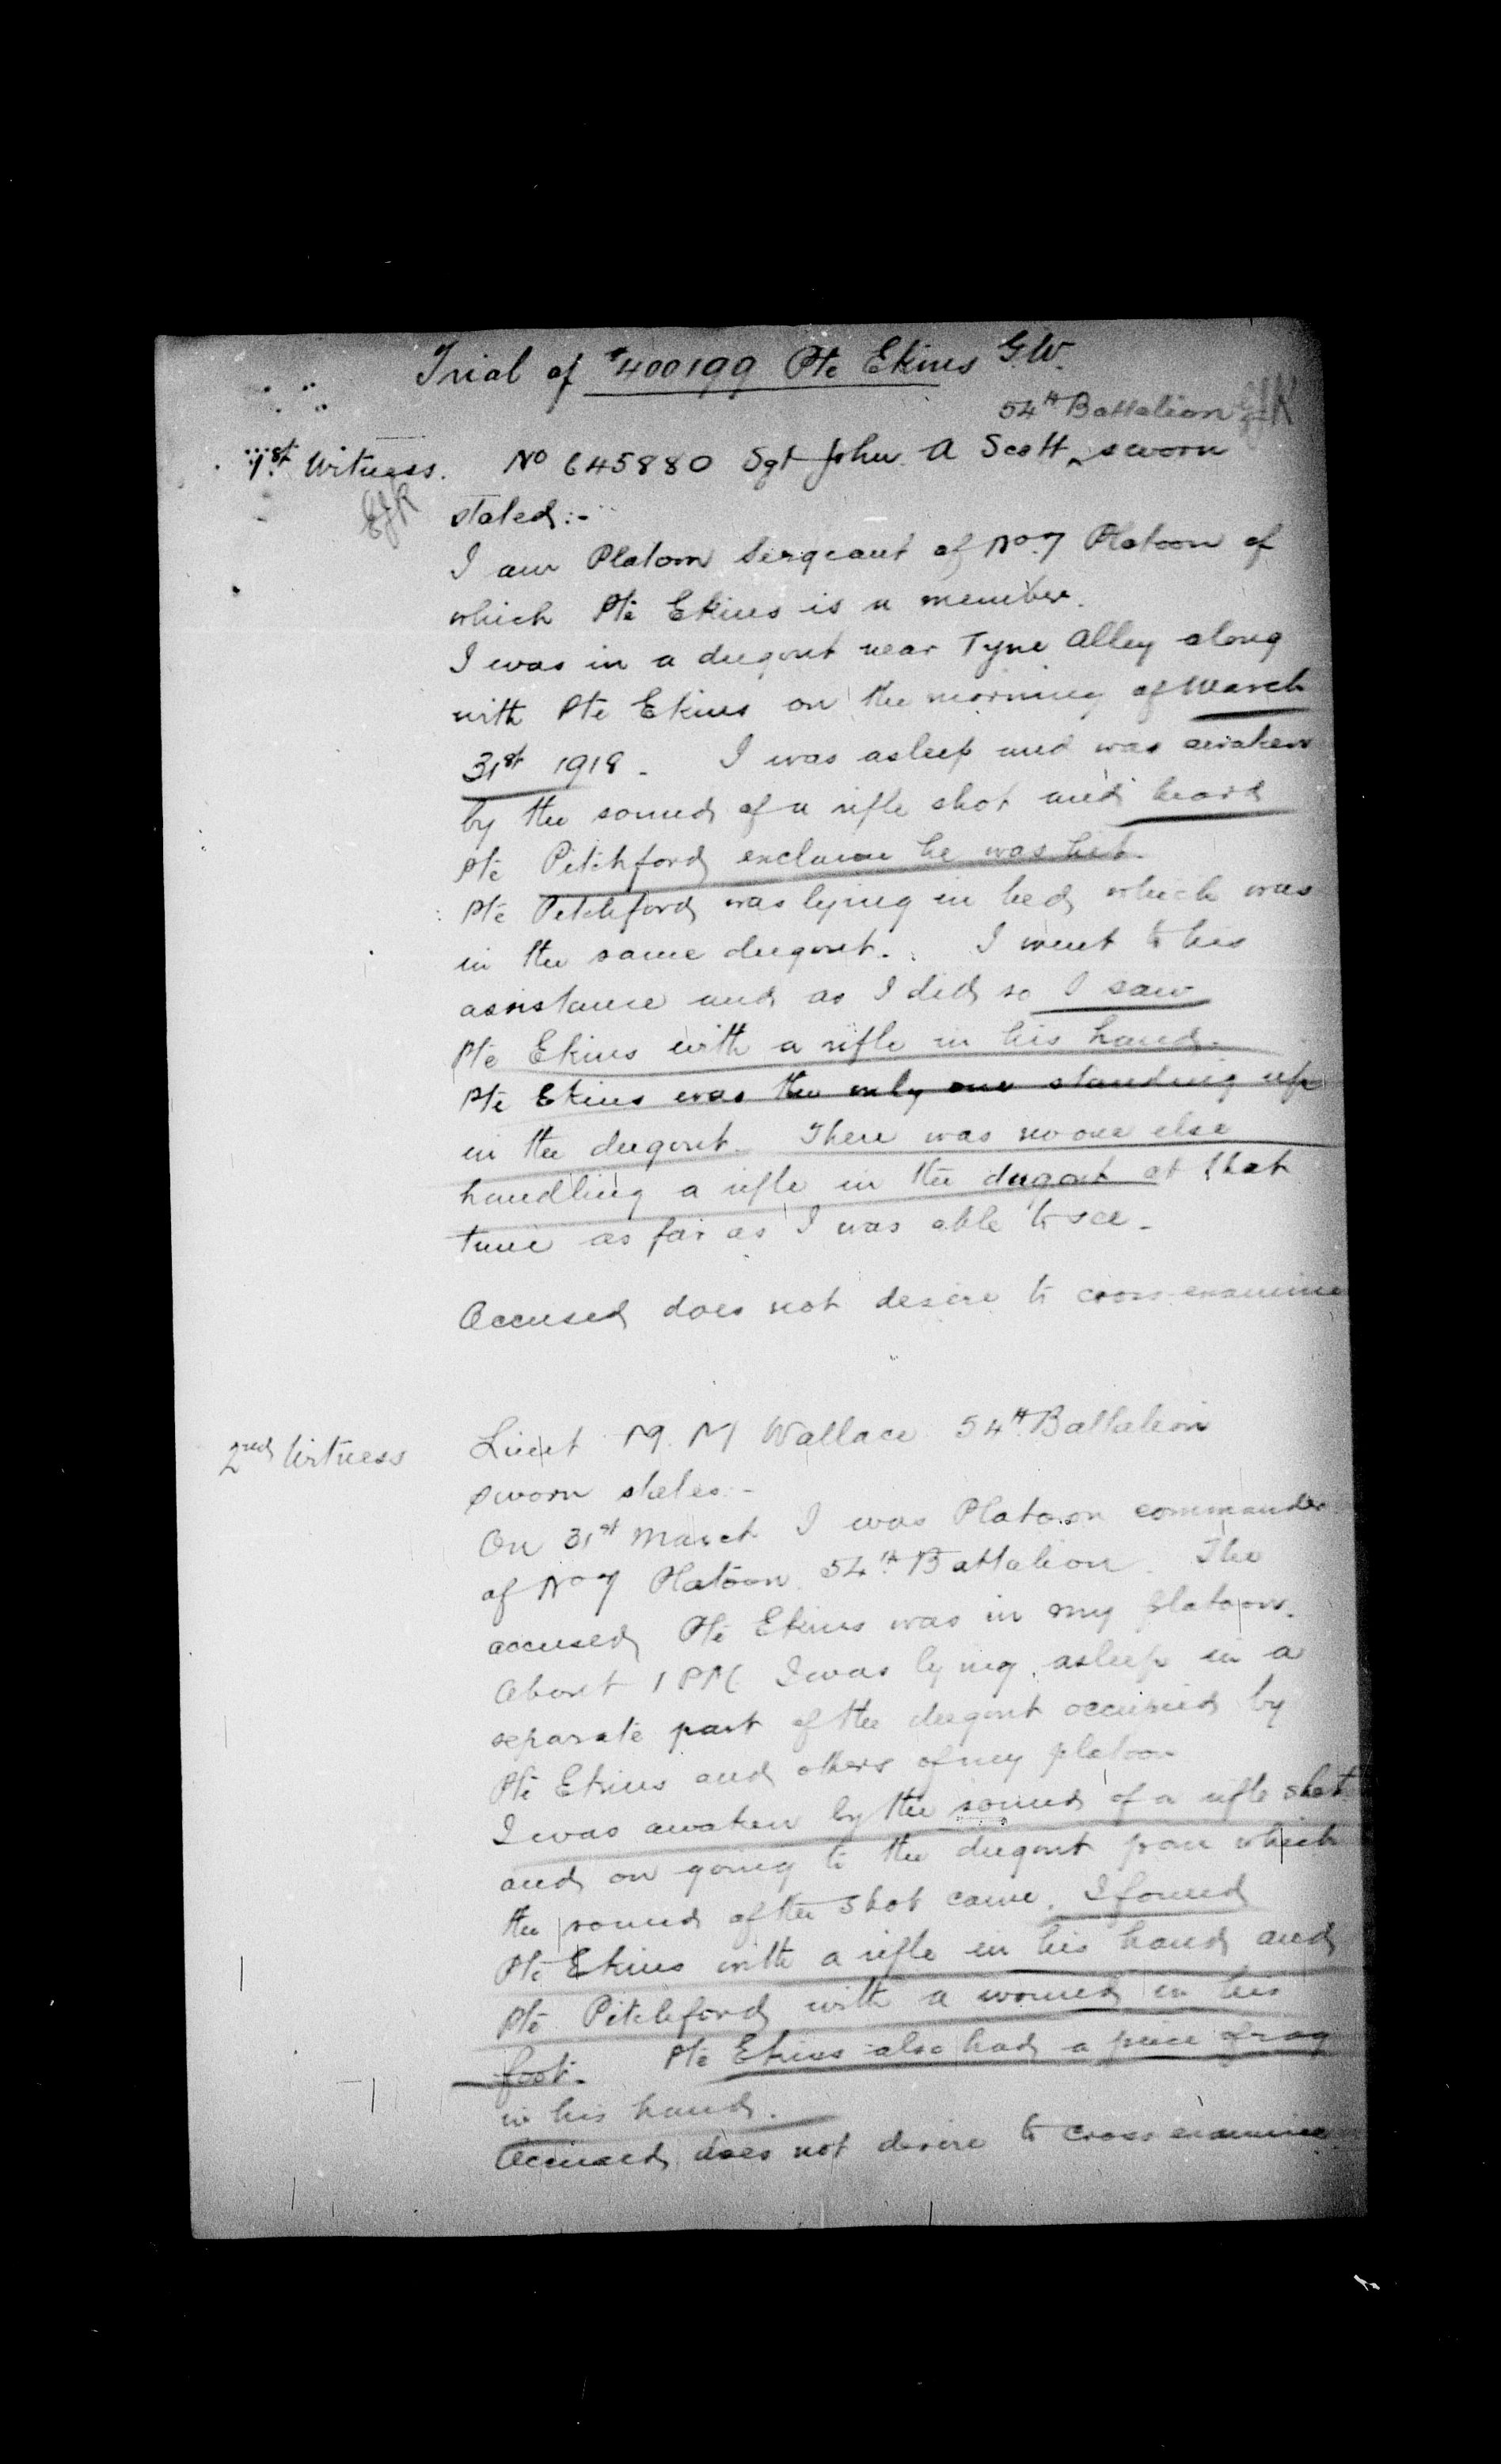 Trial of #400199 Pte Ekins G.W.
54th Battalion EJK
1st Witness. No 645880 Sgt John A Scott sworn
EJK
stated:-
I am Platoon Sergeant of No. 7 Platoon of
which Pte Ekins is a member.
I was in a dugout near Tyne Alley along
with Pte Ekins on the morning of March
31st 1918. I was asleep and was awaken
by the sound of a rifle shot and heard
Pte Pitchford exclaim he was hit.
Pte Pitchford was lying in bed which was
in the same dugout. I went to his
assistance and as I did so I saw
Pte Ekins with a rifle in his hand.
Pte Ekins was the only one standing up
in the dugout. There was no one else
handling a rifle in the dugout at that
time as far as I was able to see.
Accused does not desire to cross-examine
2nd Witness Lieut M. M Wallace 54th Battalion
sworn states:-
On 31st March I was Platoon commander
of No 7 Platoon 54th Battalion. The
accused Pte Ekins was in my platoon.
About 1 PM I was lying asleep in a
separate part of the dugout occupied by
Pte Ekins and others of my platoon
I was awaken by the sound of a rifle shot
and on going to the dugout from which
the sound of the shot came. I found
Pte Ekins with a rifle in his hand and
Pte Pitchford with a wound in his
foot. Pte Ekins also had a piece of rag
in his hand.
Accused does not desire to cross examine